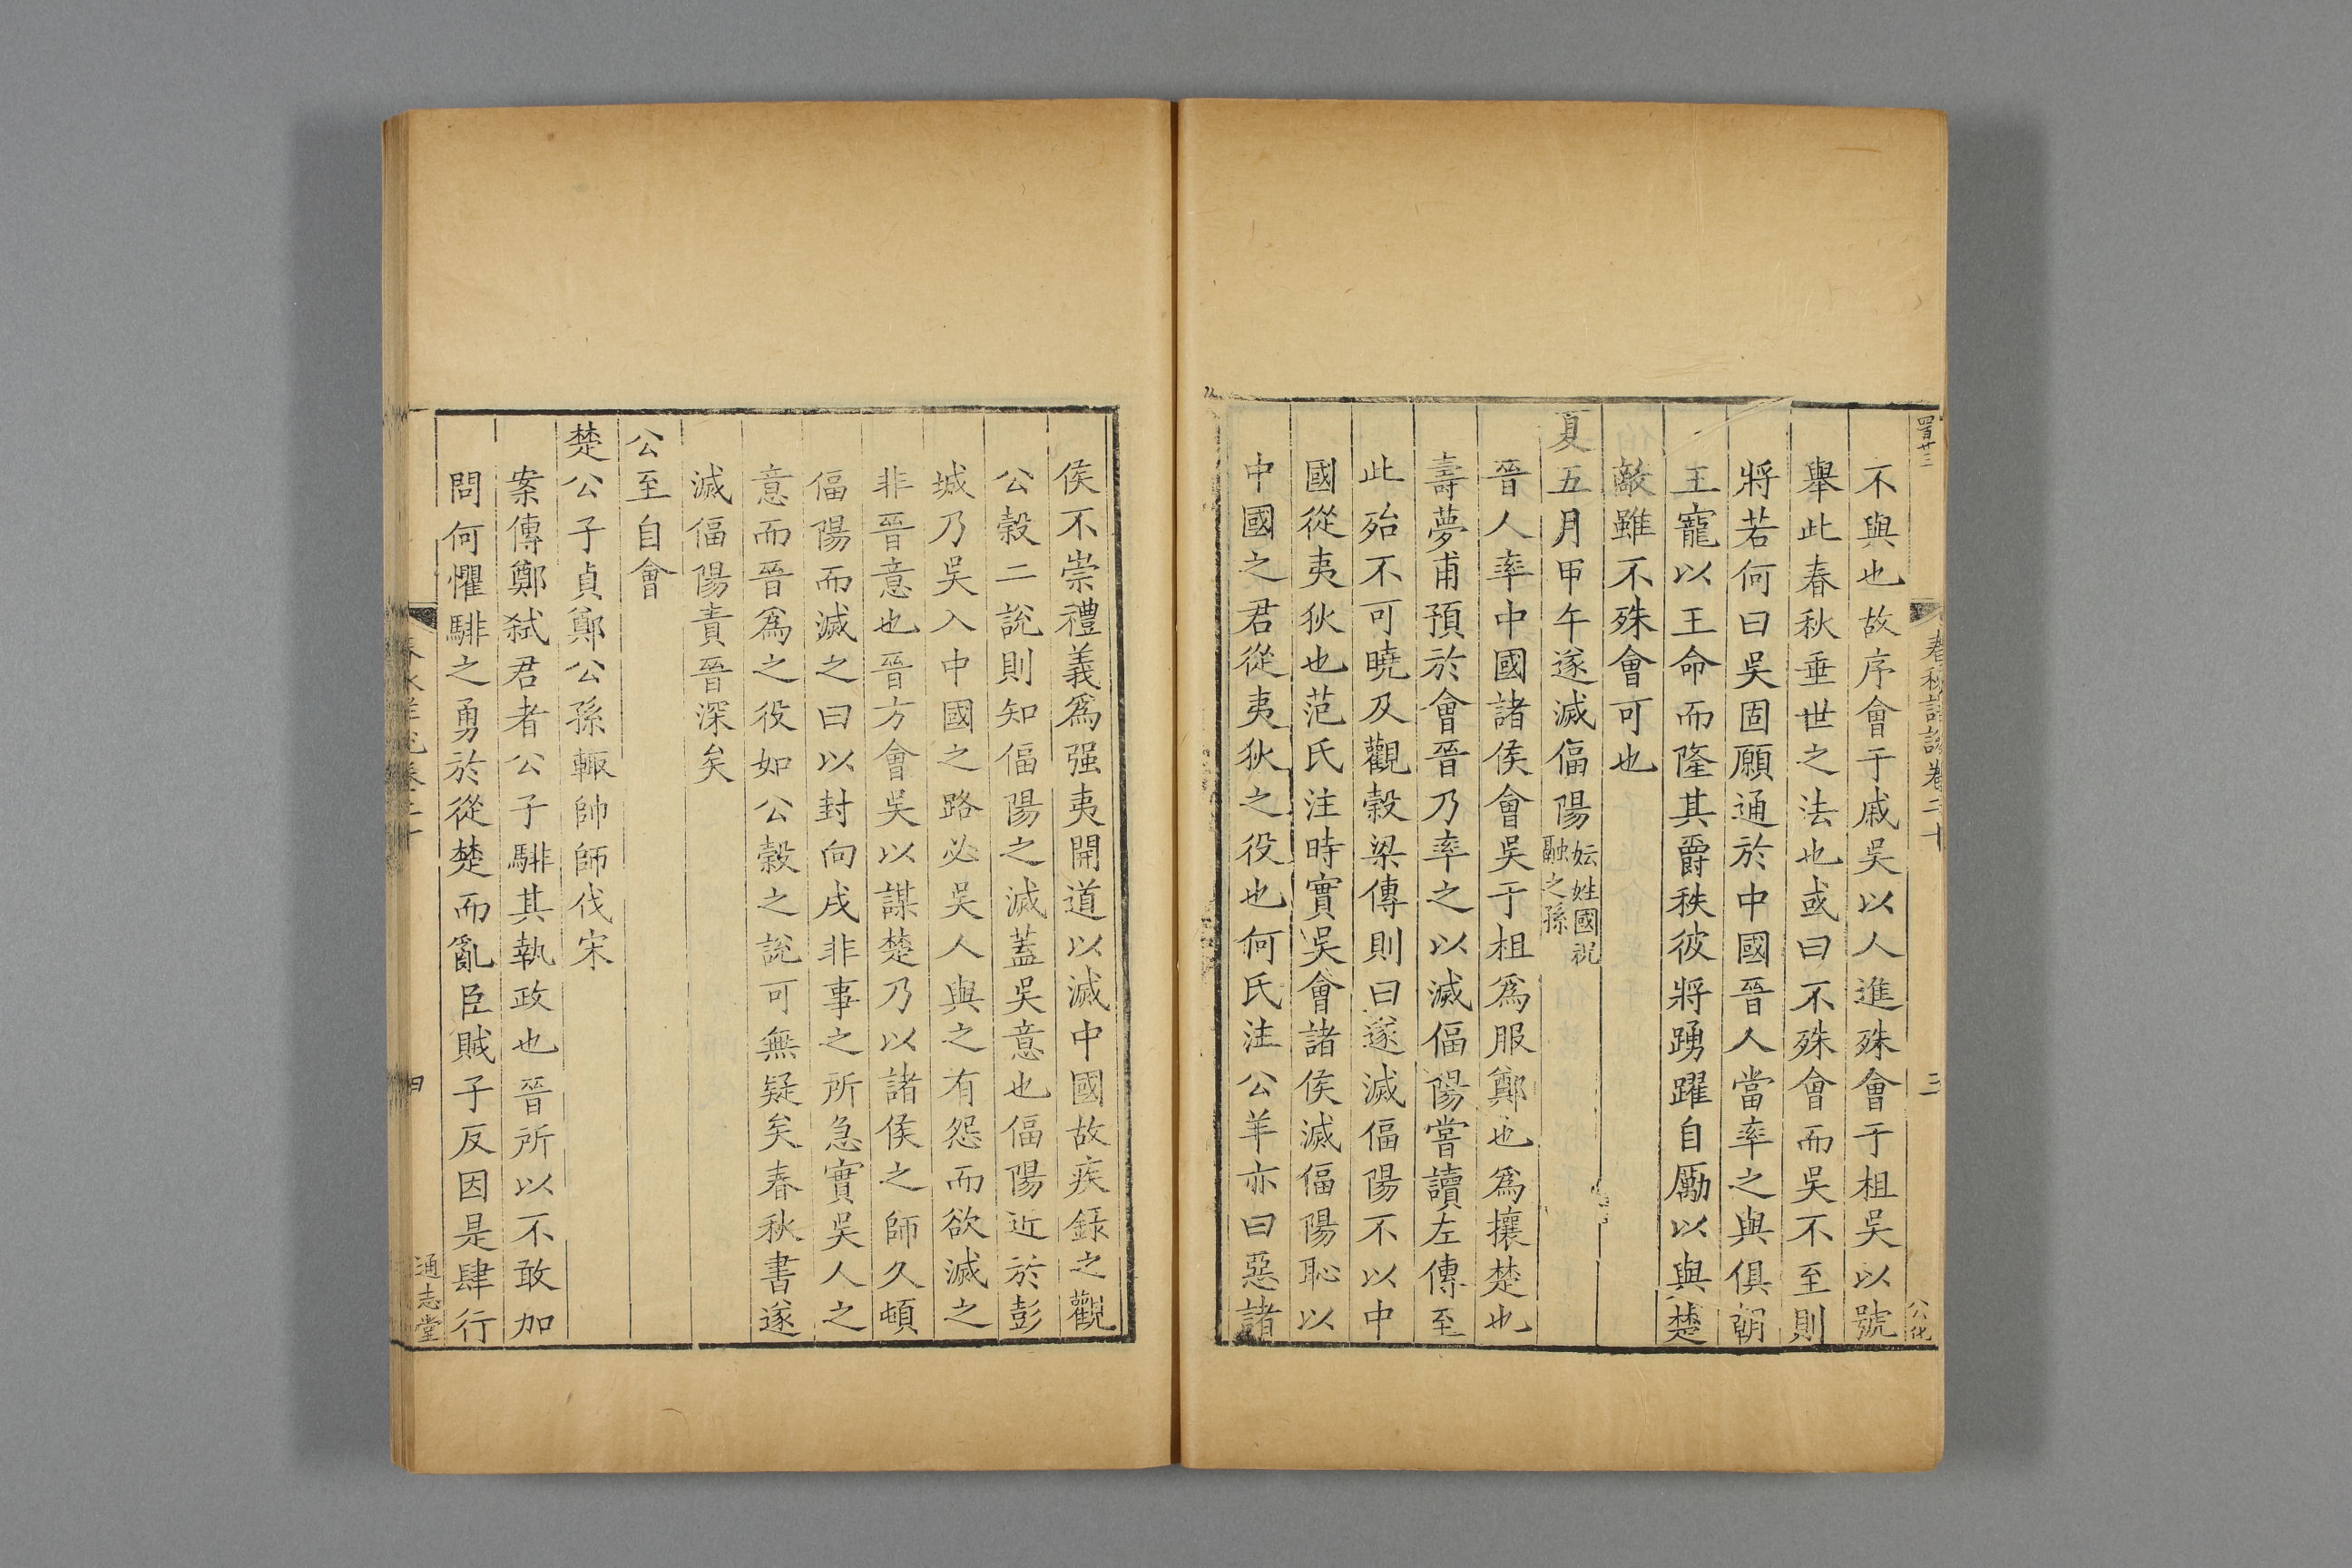 不與也故序會于戚吳以人進殊會于柤吳以號
舉此春秋垂世之法也或曰不殊會而吳不至則
將若何曰吳固願通於中國晉人當率之與俱朝
王寵以王命而隆其爵秩彼將踴躍自勵以與楚
敵雖不殊會可也
夏五月甲午遂滅偪陽妘姓國祝
融之孫
晉人率中國諸侯會吳于柤爲服鄭也爲攘楚也
壽夢甫預於會晉乃率之以滅偪陽嘗讀左傳至
此殆不可曉及觀穀梁傳則曰遂滅偪陽不以中
國從夷狄也范氏注時實吳會諸侯滅偪陽恥以
中國之君從夷狄之役也何氏注公羊亦曰惡諸
侯不崇禮義爲强夷開道以滅中國故疾錄之觀
公穀二說則知偪陽之滅蓋吳意也偪陽近於彭
城乃吳入中國之路必吳人與之有怨而欲滅之
非晉意也晉方會吳以謀楚乃以諸侯之師久頓
偪陽而滅之曰以封向戌非事之所急實吳人之
意而晉爲之役如公穀之說可無疑矣春秋書遂
滅偪陽責晉深矣
公至自會
楚公子貞鄭公孫輒帥師伐宋
案傳鄭弑君者公子騑其執政也晉所以不敢加
問何懼騑之勇於從楚而亂臣賊子反因是肆行
春秋詳說卷二十
三
通志堂